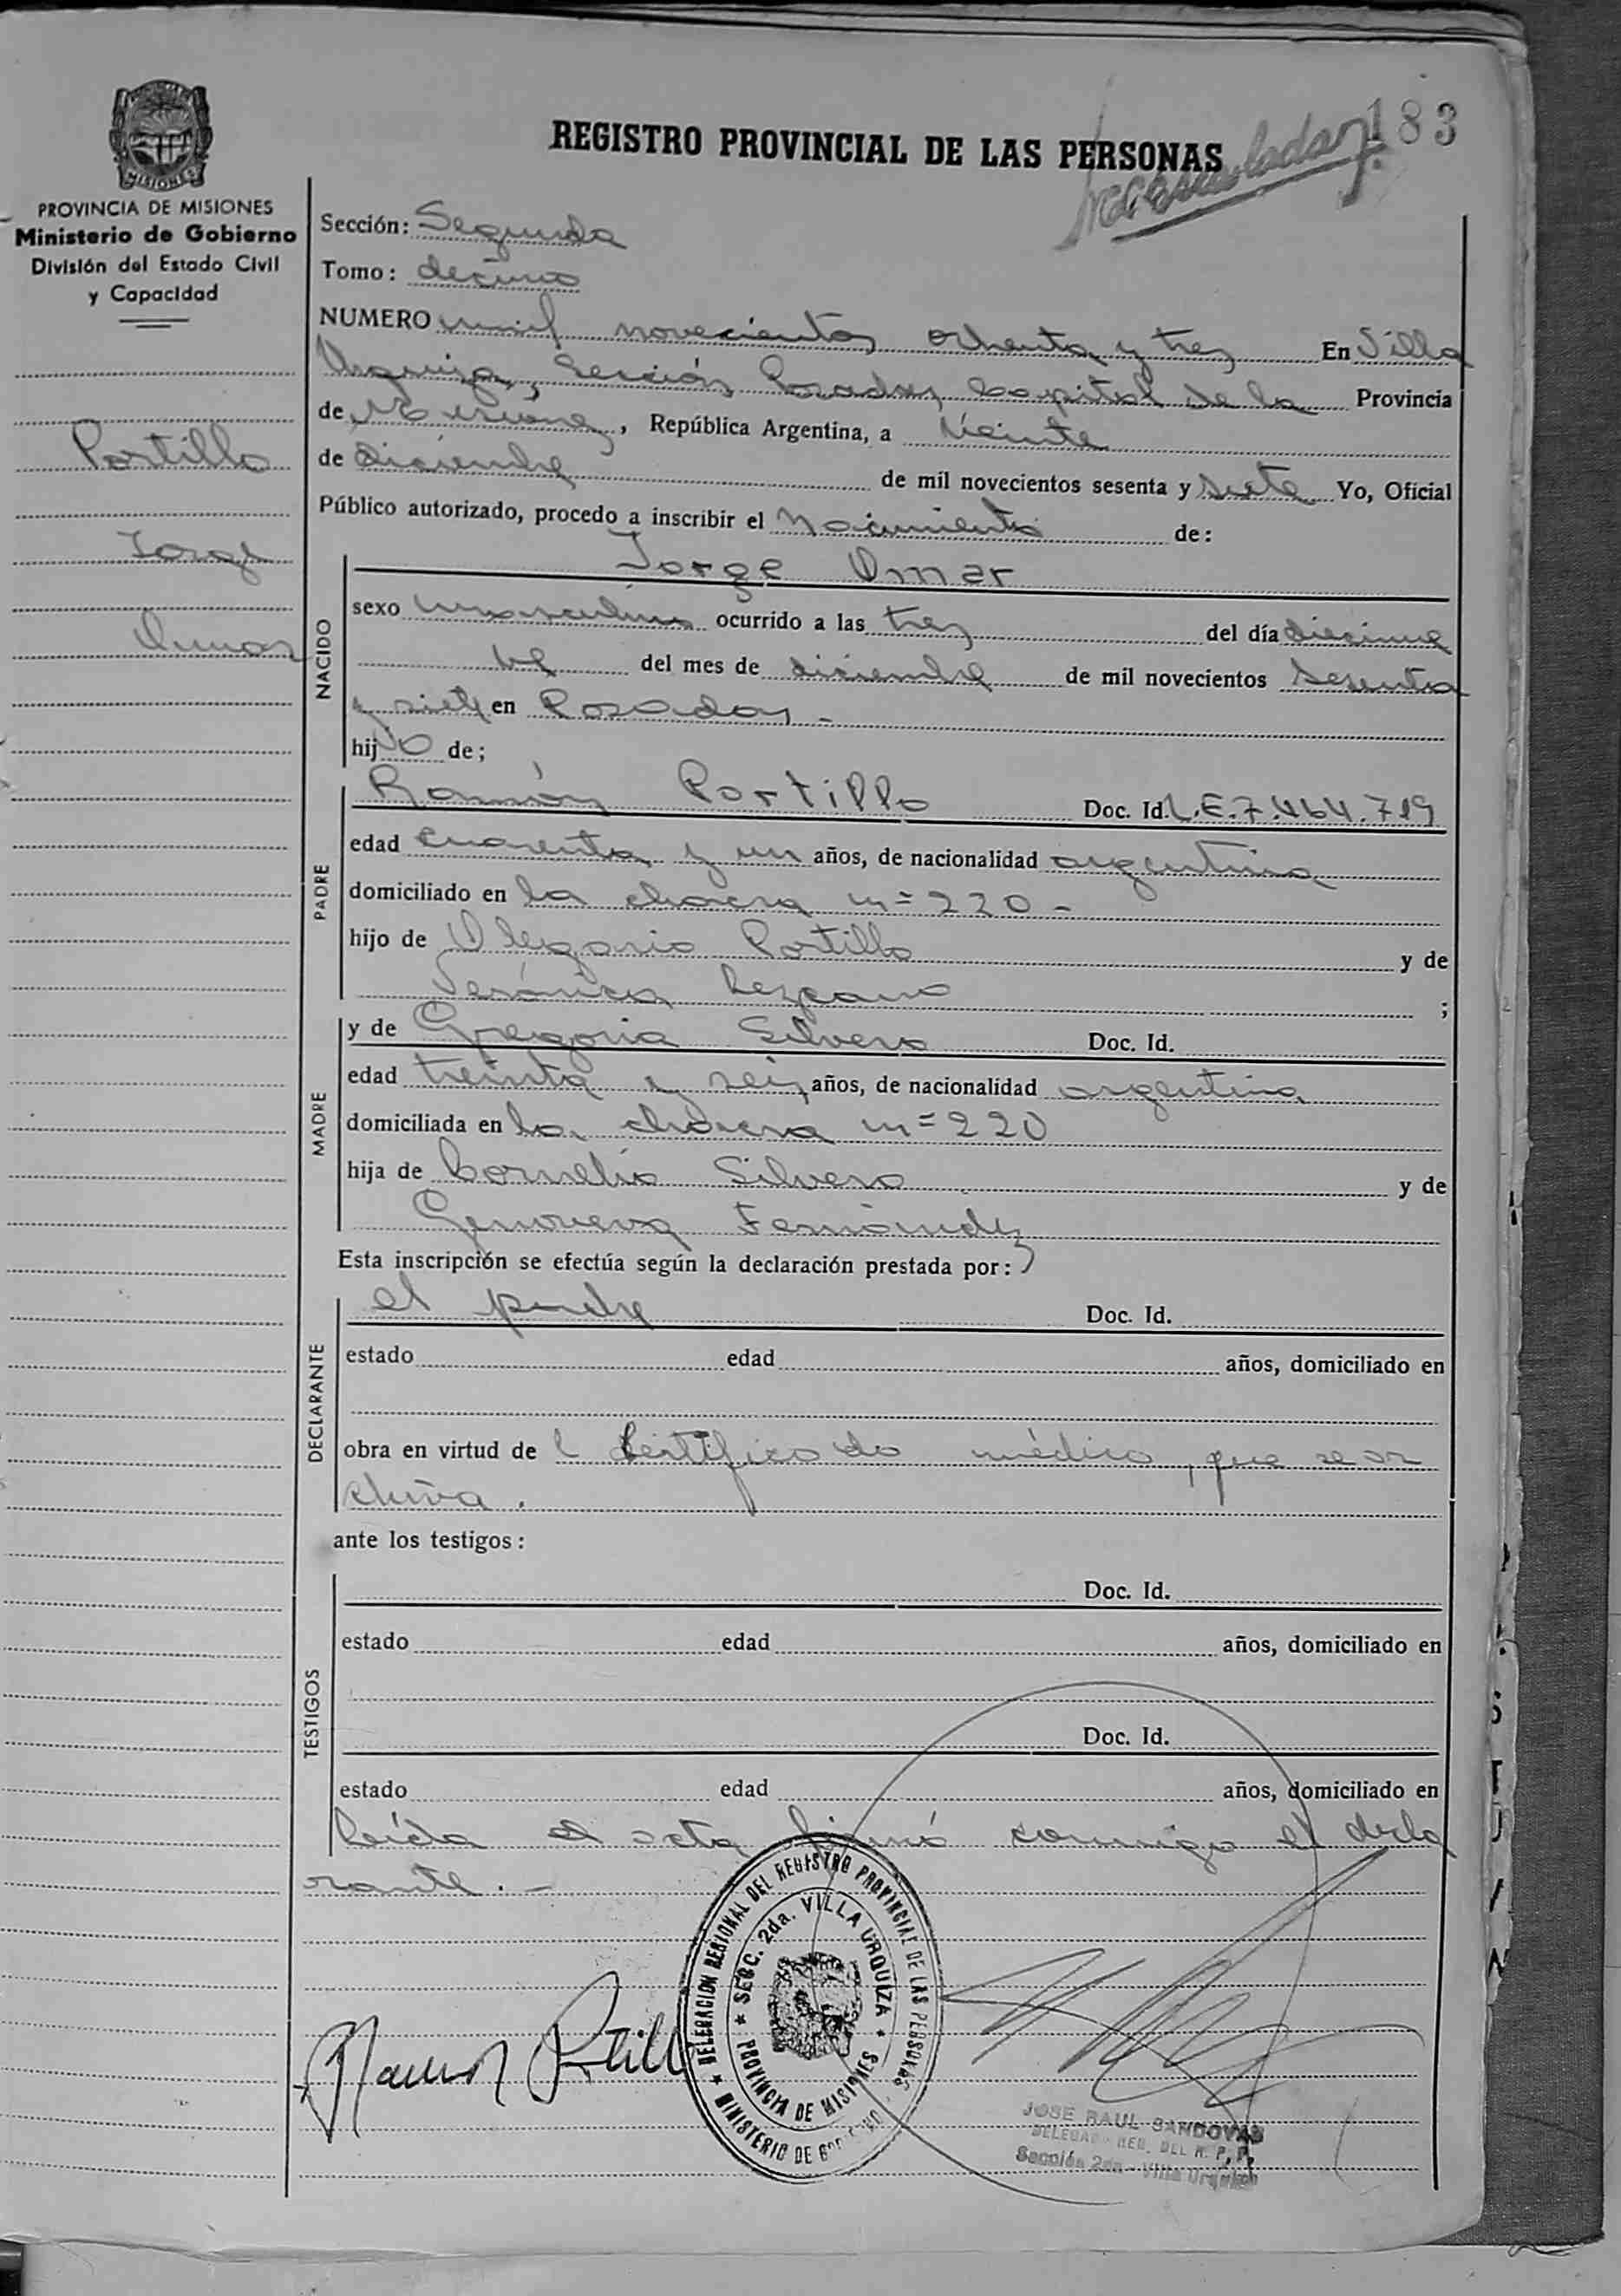 183
REGISTRO PROVINCIAL DE LAS PERSONAS
MISIONES
PROVINCIA DE MISIONES
Ministerio de Gobierno
División del Estado Civil
y Capacidad
Portillo
Jorge
Omar
Sección: Segunda
Tomo: décimo
NUMERO mil novecientos ochenta y tres En Villa
Urquiza, Sección Posadas, Capital de la Provincia
de Misiones, República Argentina, a veinte
de diciembre de mil novecientos sesenta y siete Yo, Oficial
Público autorizado, procedo a inscribir el Nacimiento de:
NACIDO
Jorge Omar
sexo masculino ocurrido a las tres del día diecinue
ve del mes de diciembre de mil novecientos sesenta
y siete en Posadas -
hijo de;
PADRE
Ramón Portillo Doc. Id. L.E. 7.464.719
edad cuarenta y un años, de nacionalidad argentina
domiciliado en la chacra nº 220 -
hijo de Olegario Portillo y de
Verónica Lezcano ;
MADRE
y de Gregoria Silvero Doc. Id.
edad treinta y seis años, de nacionalidad argentina
domiciliada en la chacra nº 220
hija de Cornelio Silvero y de
Genoveva Fernández
Esta inscripción se efectúa según la declaración prestada por:
DECLARANTE
el padre Doc. Id.
estado edad años, domiciliado en
obra en virtud del Certificado médico, que se ar
chiva.
ante los testigos:
TESTIGOS
Doc. Id.
estado edad años, domiciliado en
Doc. Id.
estado edad años, domiciliado en
Leída el acta firmó conmigo el decla
rante. -
Ramon Portillo
DELEGACION REGIONAL DEL REGISTRO PROVINCIAL DE LAS PERSONAS
MINISTERIO DE GOBIERNO
SECC. 2da. VILLA URQUIZA
PROVINCIA DE MISIONES
JOSE RAUL SANDOVAL
DELEGADO REG. DEL R. P. P.
Sección 2da - Villa Urquiza